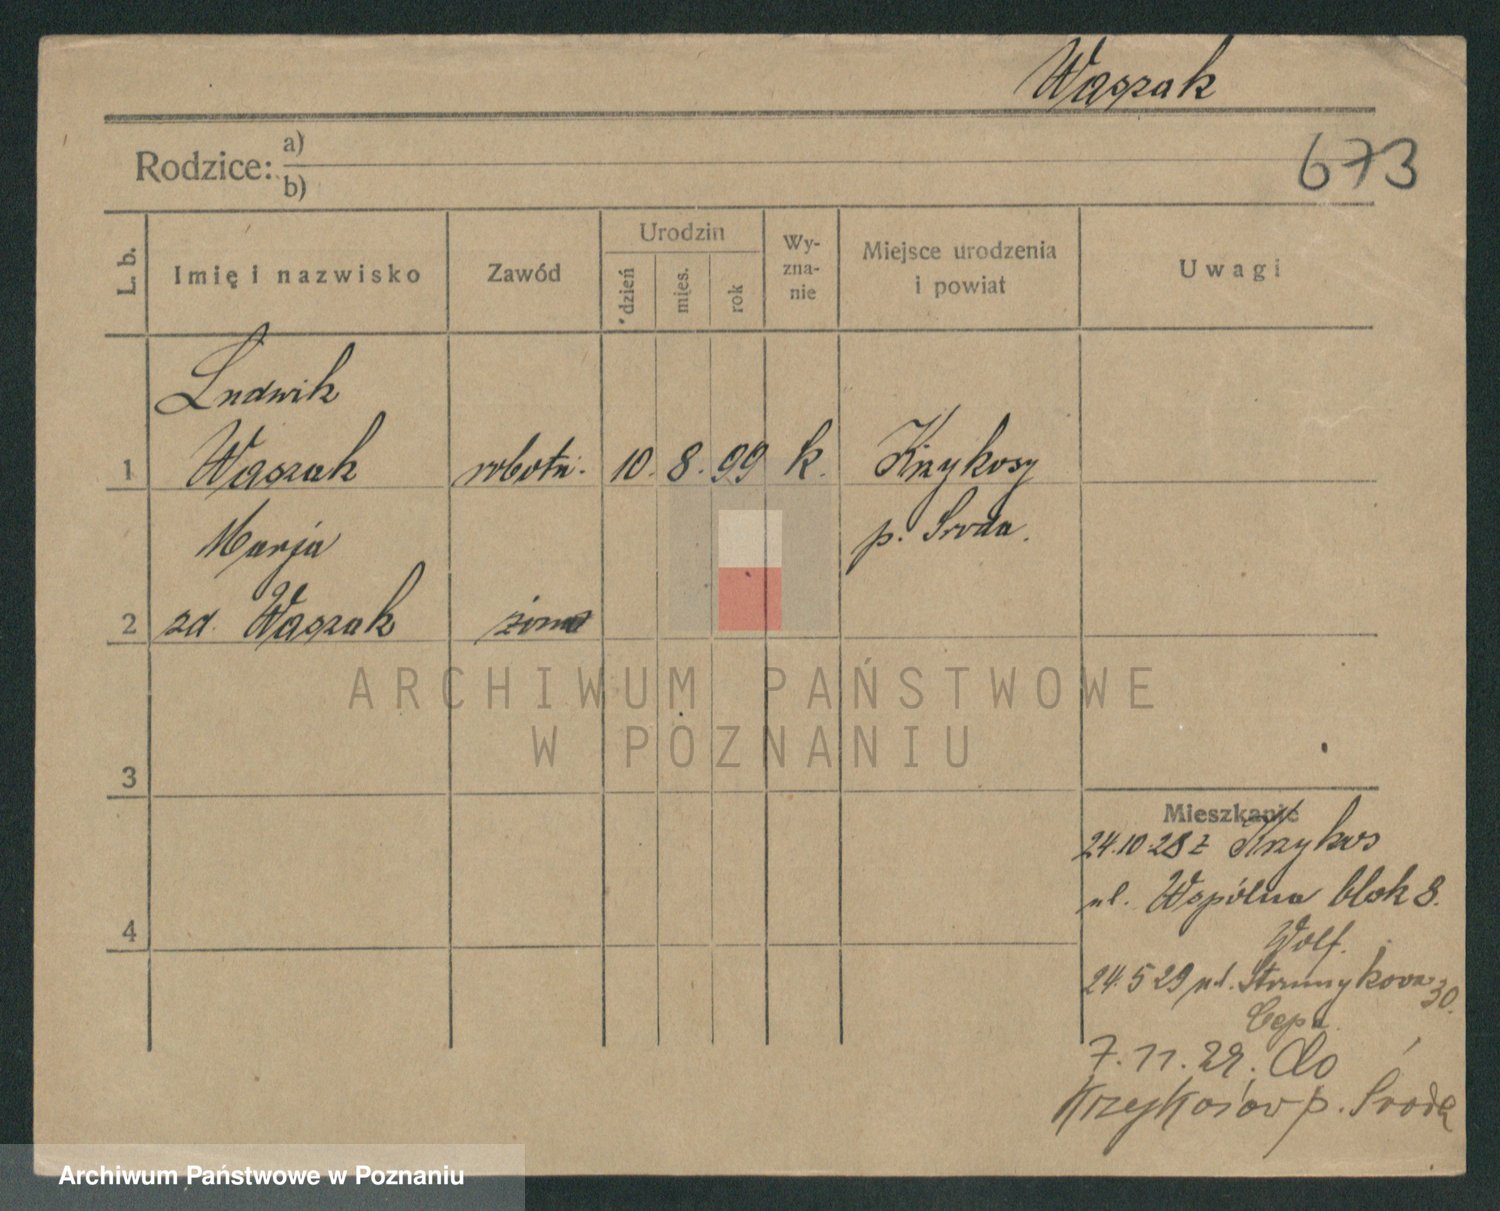 Waszak
673
Rodzice: a)
b)
L. b. Imię i nazwisko Zawód Urodzin dzień mies. rok Wyznanie Miejsce urodzenia i powiat Uwagi
Ludwik
1 Waszak robotn. 10. 8. 99 k. Krzykosy
Marja p. Środa.
2 zd. Waszak żona
ARCHIWUM PAŃSTWOWE
W POZNANIU
3
Mieszkanie
24.10.28 z Krzykos
ul. Wspólna blok 8.
4
Wolf.
24.5 29 ul.
30.
7.11.29. do
Krzykosów p. Środa
Archiwum Państwowe w Poznaniu